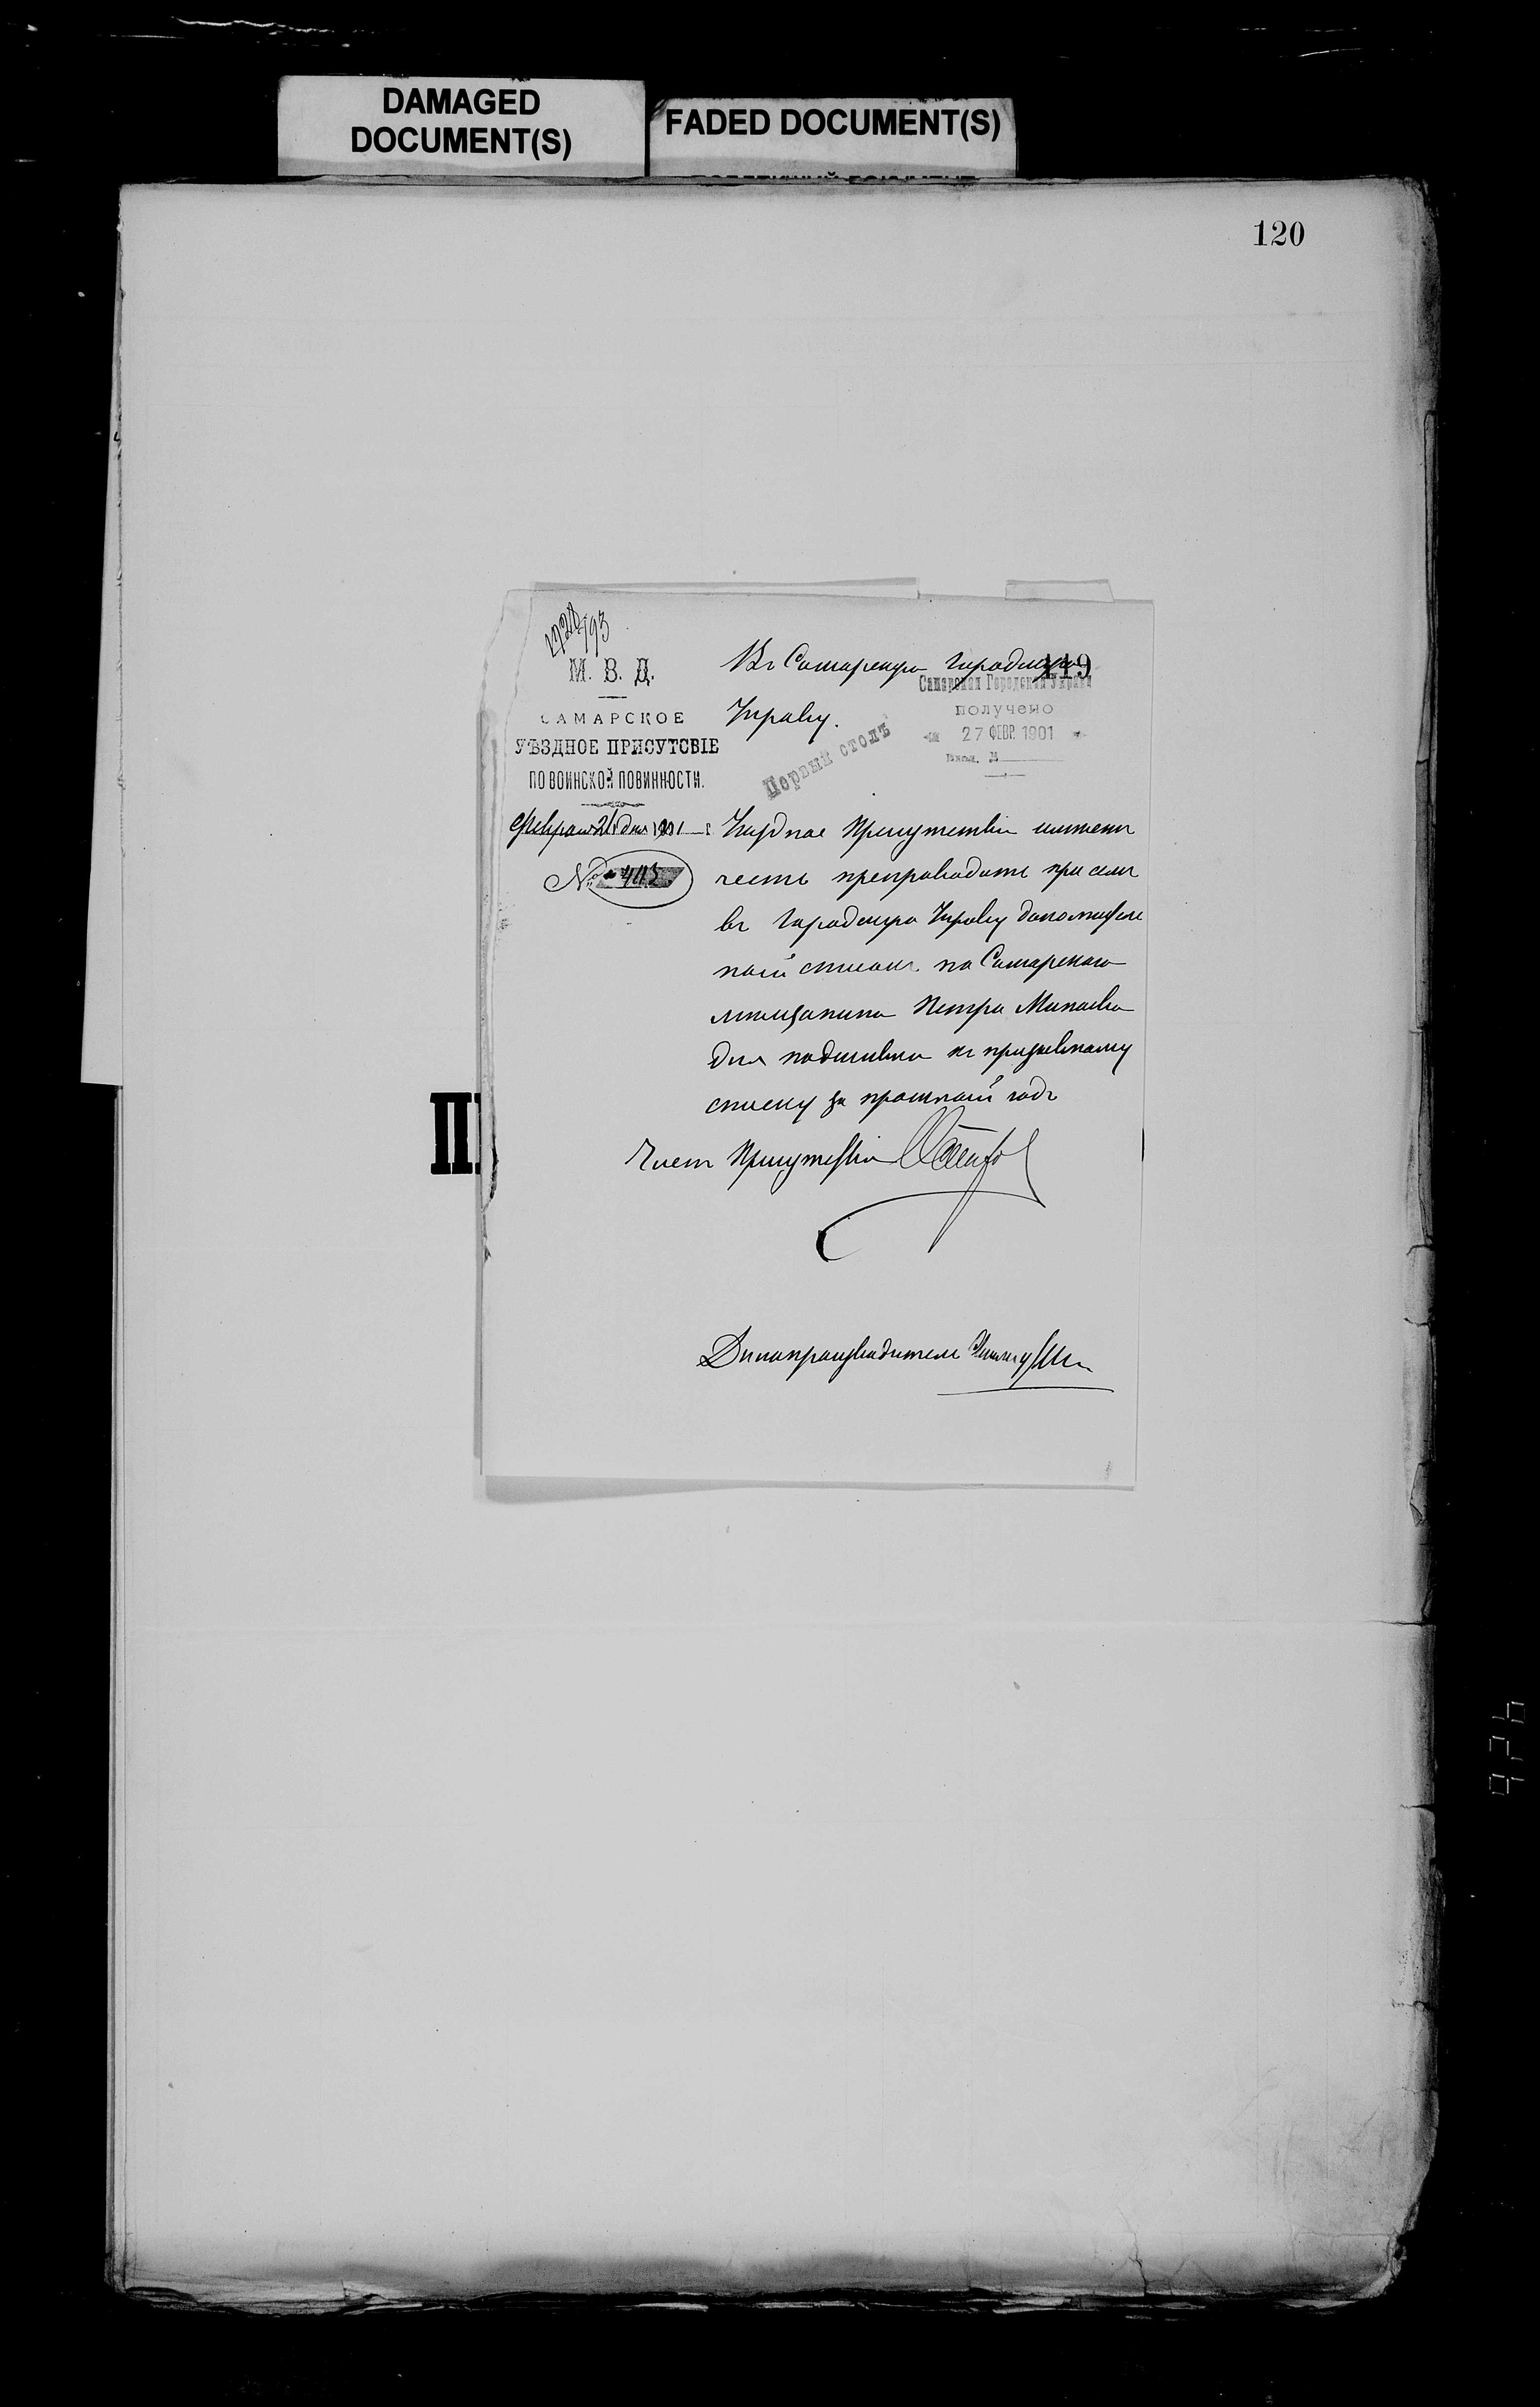 DAMAGED
DOCUMENT(S)
FADED DOCUMENT(S)
120
119
М. В. Д.
САМАРСКОЕ
УѢЗДНОЕ ПРИСУТСВІЕ
ПО ВОИНСКОЙ ПОВИННОСТИ.
Февраля 21 дня 1901 г.
№ 405
Въ Самарскую Городскую
Управу.
Самарская Городская Управа
получено
27 ФЕВР. 1901
Вход. №
Первый столъ
Уѣздное Присутствіе имѣетъ
честь препроводить при семъ
въ Городскую Управу дополнитель
ный списокъ на Самарскаго
мѣщанина Петра Минаева
для подшивки къ призывному
списку за прошлый годъ
Членъ Присутствія
Дѣлопроизводитель
926